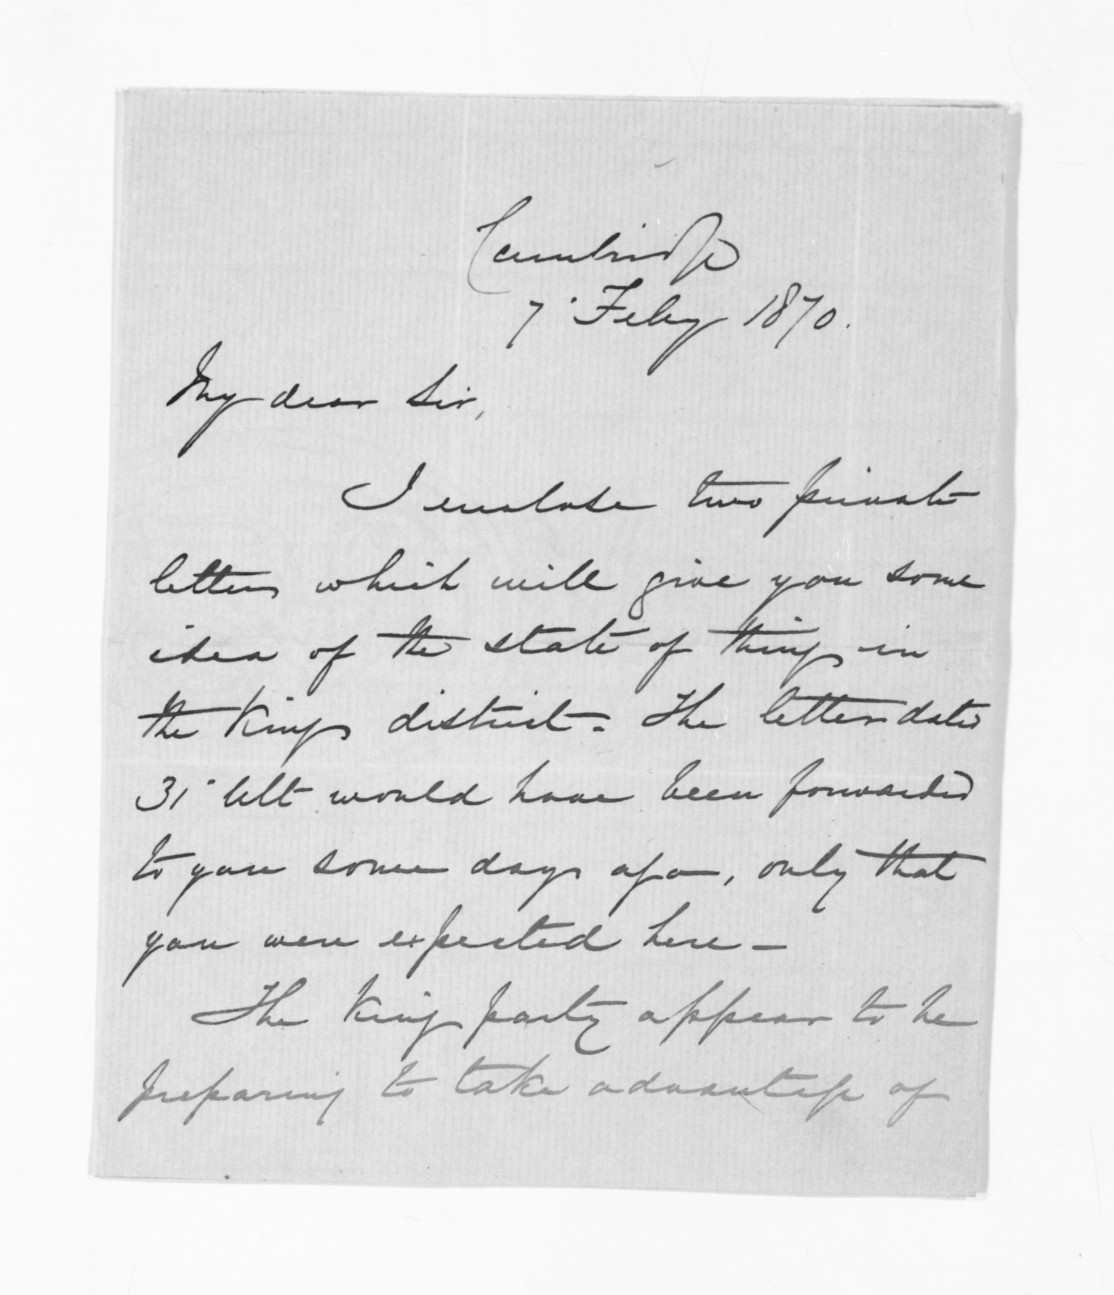 Cambridge
7 Feby 1870.
My dear Sir,
I enclose two private
letters which will give you some
idea of the state of things in
the Kings district. The letter dated
31 Ult would have been forwarded
to you some days ago, only that
you were expected here -
The King party appear to be
preparing to take advantage of